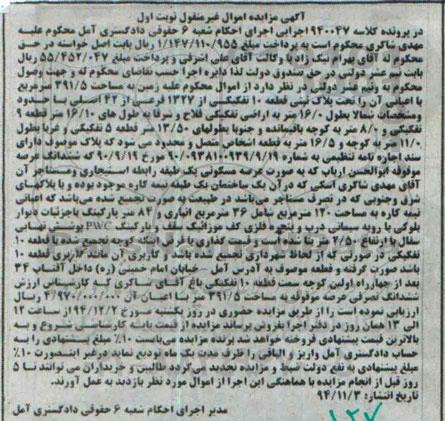 آگهی مزایده اموال غیرمنقول نوبت اول
در پرونده کلاسه ۹۴۰۰۴۷اجرایی اجرای احکام شعبه ۶ حقوقی دادگستری آمل محکوم علیه
مهدی شاکری محکوم است به پرداخت مبلغ ۱/۱۴۷/۱۱۰/۹۵۵ ریال بابت اصل خواسته در حق
محکوم له آقای بهرام نیک زاد با وکالت آقای علی اشرفی و پرداخت مبلغ ۵۵/۴۵۲/۰۴۷ ریال
بابت نیم عشر دولتی در حق صندوق دولت لذا دایره اجرا حسب تقاضای محکوم له و جهت وصول
محکوم به ونیم عشر دولتی در نظر دارد از اموال محکوم علیه زمین به مساحت ۳۹۱/۵ مترمربع
با اعیانی آن را تحت پلاک ثبتی قطعه ۱۰ تفکیکی از ۱۳۲۷ فرعی از ۴۲ اصلی با حدود
ومشخصات شمالا بطول ۱۶/۰۰ متر به اراضی تفکیکی فلاح و شرقا به طول های ۱۶/۱۰ متر قطعه ۹
تفکیکی و ۸/۰ متر به کوچه باقیمانده و جنوبا بطولهای ۱۳/۵۰ متر قطعه ۵ تفکیکی و غربا بطول
۱۱/۰۰ متر به کوچه و ۱۶/۵ متر به قطعه اشخاص متصل و محدود می شود که پلاک موصوف دارای
سند اجاره نامه تنظیمی به شماره ۹۰۰۹۳۸۱۰۰۹۳۹/۹/۱۹ مورخ ۹۰/۹/۱۹ که ششدانگ عرصه
موقوفه ابوالحسن ارباب که به صورت عرصه مسکونی یک طبقه رابطه استیجاری و مستاجر آن
آقای مهدی شاکری آسکی که درآن یک ساختمان یک طبقه نیمه کاره موجود بوده و با پلاکهای
شرقی وجنوبی که در تصرف مستاجر می باشد در طبیعت به صورت تجمیع شده می باشد که اعیانی
نیمه کاره به مساحت ۱۲۰ مترمربع شامل ۳۶ مترمربع انباری و ۸۴ متر پارکینگ باجزئیات دیوار
بلوکی با رویه سیمانی درب و پنجره فلزی کف موزائیک سقف و پارکینگ PWC پوشش نهایی
سفال با ارتفاع ۲/۵۰ متر بنا شده است و ثبت گذاری با فرض اینکه کوچه تجمیع شده با قطعه ۱۰
تفکیکی در صورتی که از لحاظ شهرداری تجمیع شده باشد و کاربری آن مانند کاربری قطعه ۱۰
باشد صورت گرفته و قطعه موصوف به آدرس آمل - خیابان امام خمینی (ره) داخل آفتاب ۳۴
بعد از چهارراه اولین کوچه سمت قطعه ۱۰ تفکیکی باغ آقای شاکری که کارشناس ارزش
ششدانگ تصرفی عرصه موقوفه به مساحت ۳۹۱/۵ متر با اعیان آن ۴/۹۷۰/۰۰۰/۰۰۰ ریال
ارزیابی نموده است را از طریق مزایده حضوری در روز یکشنبه مورخ ۹۴/۱۲/۲ از ساعت ۱۲
الی ۱۳ همان روز در دفتر اجرا بفروش برساند مزایده از قیمت پایه کارشناسی شروع و به
بالاترین قیمت پیشنهادی فروخته خواهد شد برنده مزایده می بایست ۱۰٪ مبلغ پیشنهادی را به
حساب دادگستری آمل واریز و الباقی را ظرف مدت یک ماه تودیع نماید درغیر اینصورت ۱۰٪
مبلغ پیشنهادی به نفع دولت ضبط و مزایده تجدید می گردد طالبین و خریداران می توانند تا ۵
روز قبل از انجام مزایده با هماهنگی این اجرا از اموال مورد نظر بازدید به عمل آورند.
تاریخ انتشار: ۹۴/۱۱/۳
مدیر اجرای احکام شعبه ۶ حقوقی دادگستری آمل
۱۲۷